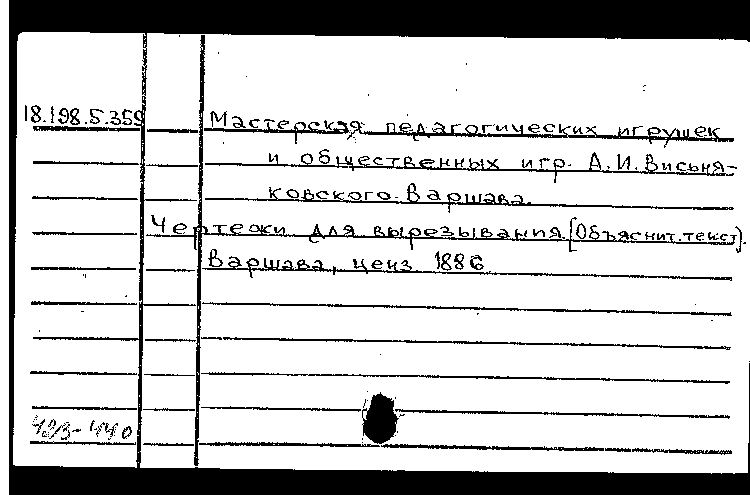 18.198.5.359 Мастерская педагогических игрушек
и общественных игр. А.И.Висьня-
ковского. Варшава.
Чертежи для вырезывания.[Объяснит.текст].
Варшава, ценз 1886